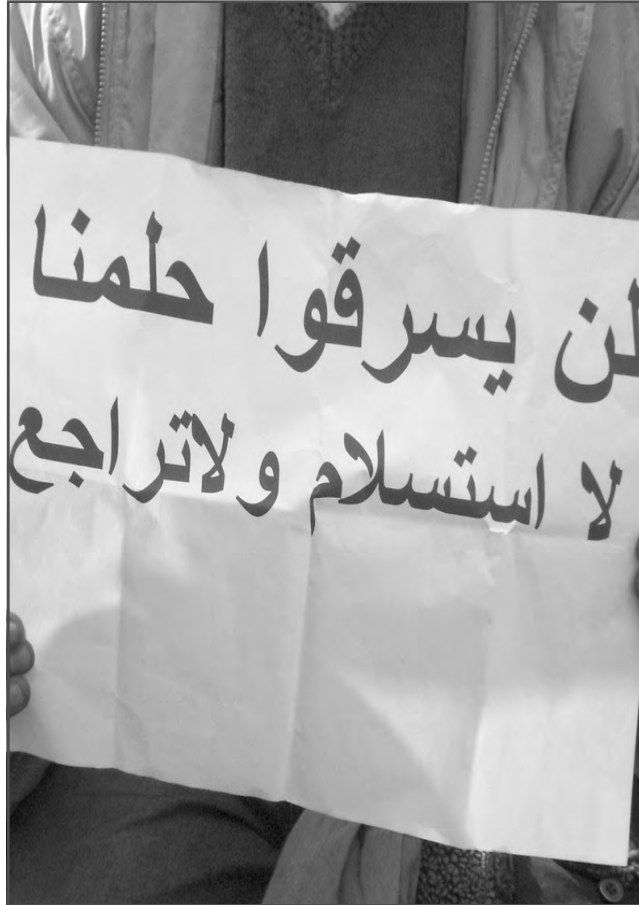 لن يسرقوا حلمنا
لا استسلام ولاتراجع